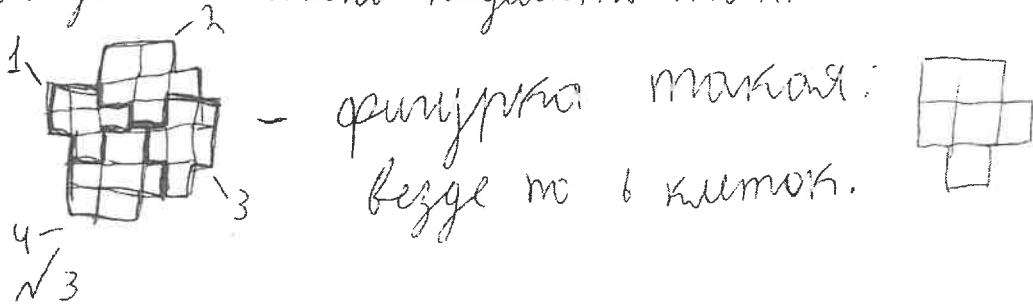 2
1
- фигурка такая:
везде по 6 клеток.
3
4
№3